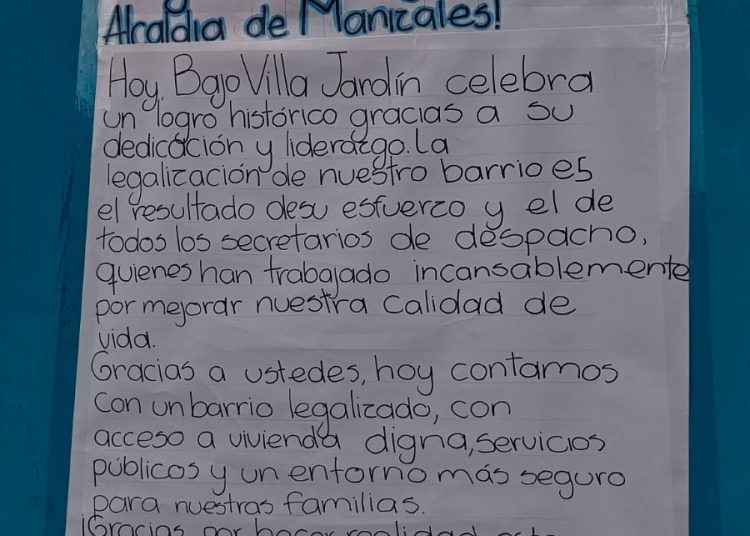 Alcaldia de Manizales!
Hoy, Bajo Villa Jardín celebra
un logro histórico gracias a su
dedicación y liderazgo. La
legalización de nuestro barrio es
el resultado de su esfuerzo y el de
todos los secretarios de despacho,
quienes han trabajado incansablemente
por mejorar nuestra calidad de
vida.
Gracias a ustedes, hoy contamos
con un barrio legalizado, con
acceso a vivienda digna, servicios
públicos y un entorno más seguro
para nuestras familias.
¡Gracias por hacer realidad este